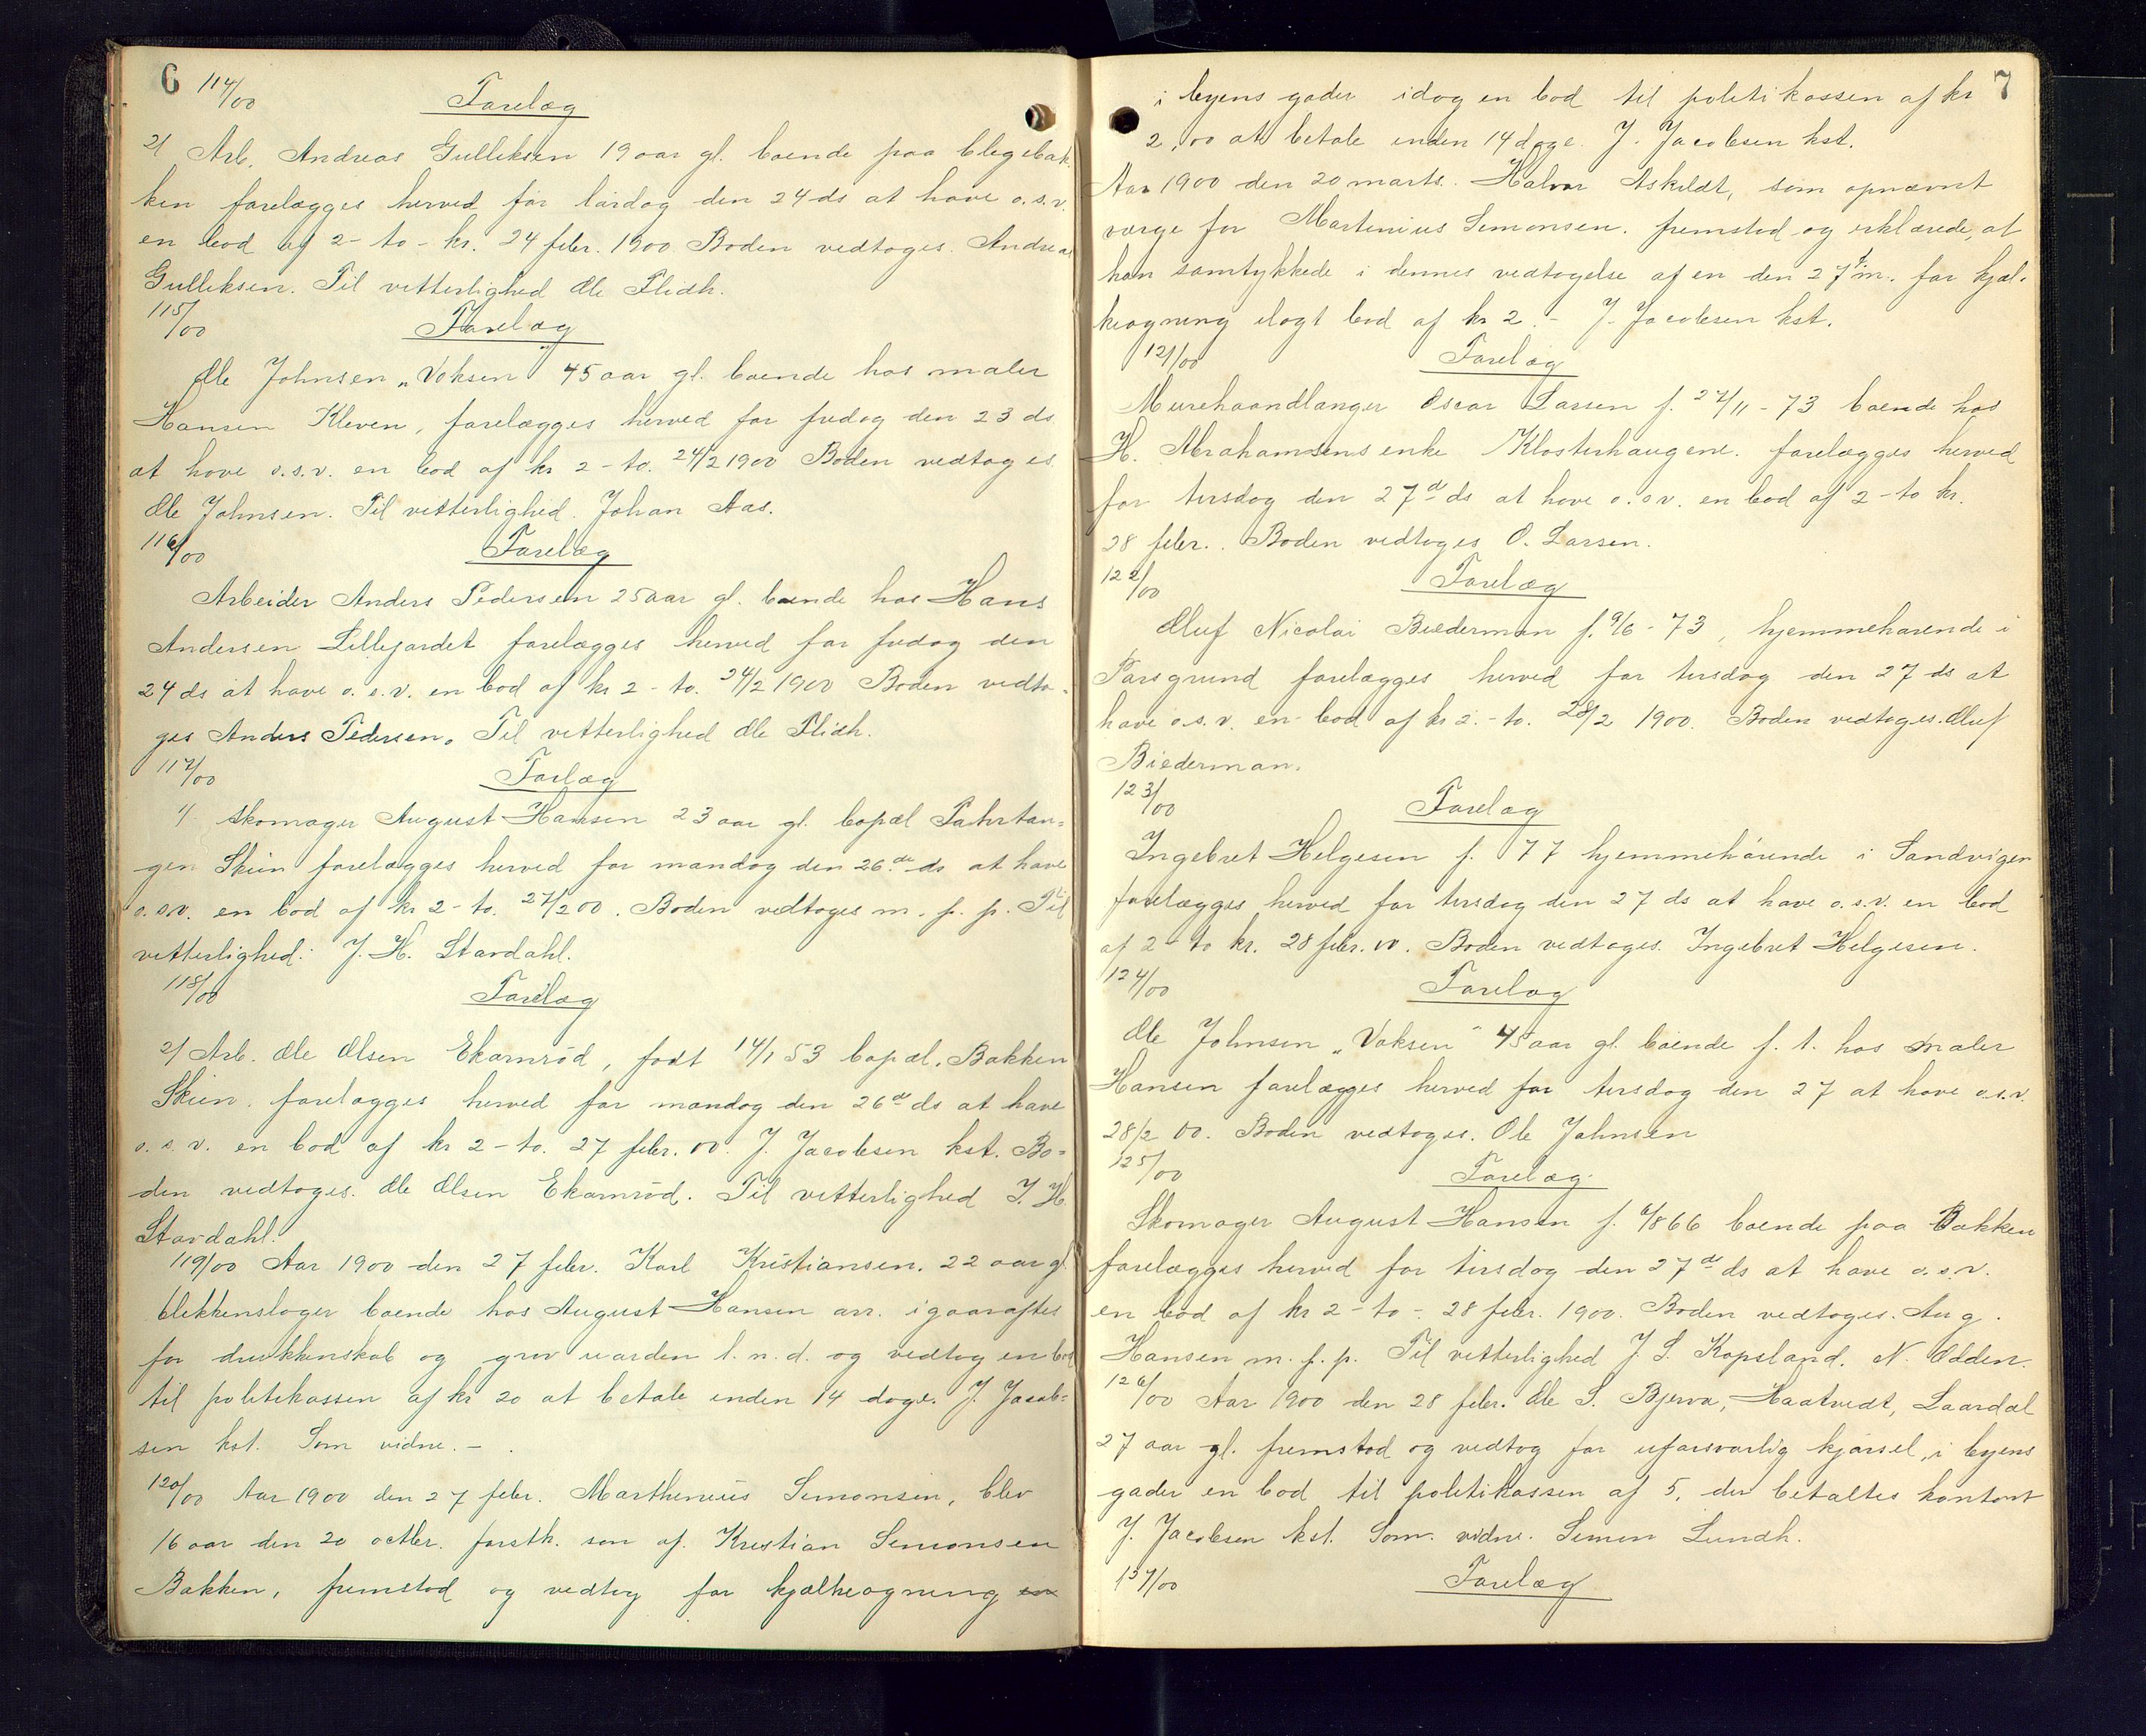 6 114/00 Forelæg
2/ Arb. Andreas Gulliksen 19 aar gl. boende paa blegebak
ken forelægges herved for lördag den 24 ds at have o.s.v.
en bod af 2 - to - kr. 24 febr. 1900 Boden vedtoges. Andreas
Gulliksen. Til vitterlighed Ole Flidh.
115/00 Forelæg
Ole Johnsen „Voksen" 45 aar gl. boende hos maler
Hansen Kleven, forelægges herved for fredag den 23 ds
at have o.s.v. en bod af kr 2 - to. 24/2 1900 Boden vedtoges
Ole Johnsen. Til vitterlighed. Johan Aas.
116/00 Forelæg
Arbeider Anders Pedersen 25 aar gl. boende hos Hans
Andersen Lillejordet forelægges herved for fredag den
24 ds at have o. s. v. en bod af kr 2 - to. 24/2 1900 Boden vedto-
ges Anders Pedersen. Til vitterlighed Ole Flidh.
117/00 Forlæg
1/ Skomager August Hansen 23 aar gl. bopæl Fahrtan=
gen Skien forelægges herved for mandag den 26.de ds at have
o.s.v. en bod af kr 2 - to. 27/2 00. Boden vedtoges m. f. p. Til
vitterlighed: J. H. Stardahl.
118/00 Forelæg
2/ Arb. Ole Olsen Ekornröd, födt 14/1 53 bopæl. Bakken
Skien. forelægges herved for mandag den 26de ds at have
o. s. v. en bod af kr 2 - to. 27 febr. 00. J. Jacobsen kst. Bo=
den vedtoges. Ole Olsen Ekornröd. Til vitterlighed J. H.
Stardahl.
119/00 Aar 1900 den 27 febr. Karl Kristiansen. 22 aar gl
blikkenslager boende hos August Hansen arr. igaaraftes
for drukkenskab og grov uorden l. n. d. og vedtog en bod
til politikassen af kr 20 at betale inden 14 dage. J. Jacob=
sen kst. Som vidne. -
120/00 Aar 1900 den 27 febr. Marthinius Simonsen, blev
16 aar den 20 octbr. forstk. sön af. Kristian Simonsen
Bakken, fremstod og vedtog for kjælkeagning en
7
i byens gader idag en bod til politikassen af kr
2,00 at betale inden 14 dage. J. Jacobsen kst.
Aar 1900 den 20 marts. Halvor Askildt, som opnævnt
værge for Martinius Simonsen. fremstod og erklærede, at
han samtykkede i dennes vedtagelse af en den 27 f.m. for kjæl-
keagning ilagt bod af kr 2. - J. Jacobsen kst.
121/00 Forelæg
Murehaandlanger Oscar Larsen f. 27/11 - 73 boende hos
H. Abrahamsens enke Klosterhaugene. forelægges herved
for tirsdag den 27de ds at have o.s.v. en bod af 2 - to kr.
28 febr. . Boden vedtoges O. Larsen.
122/00 Forelæg
Oluf Nicolai Biederman f. 9/6 - 73, hjemmehørende i
Porsgrund forelægges herved for tirsdag den 27 ds at
have o.s.v. en bod af kr 2. - to. 28/2 1900. Boden vedtoges. Oluf
Biederman.
123/00 Forelæg
Ingebret Helgesen f. 77 hjemmehörende i Sandvigen
forelægges herved for tirsdag den 27 ds at have o.s.v. en bod
af 2 - to kr. 28 febr. 00. Boden vedtoges. Ingebret Helgesen.
124/00 Forelæg
Ole Johnsen „Voksen" 45 aar gl. boende f. t. hos maler
Hansen forelægges herved for tirsdag den 27 at have o.s.v.
28/2 00. Boden vedtoges. Ole Johnsen
125/00 Forelæg.
Skomager August Hansen f. 6/8 66 boende paa Bakken
forelægges herved for tirsdag den 27de ds at have o. s. v.
en bod af kr 2 - to - 28 febr. 1900. Boden vedtoges. Aug.
Hansen m. f. p. Til vitterlighed J. S. Kopsland. N. Odden.
126/00 Aar 1900 den 28 febr. Ole S. Bjerva, Haatvedt, Laardal
27 aar gl. fremstod og vedtog for uforsvarlig kjörsel, i byens
gader en bod til politikassen af 5, der betaltes kontant
J. Jacobsen kst. Som vidne. Simen Lundh.
137/00 Forelæg